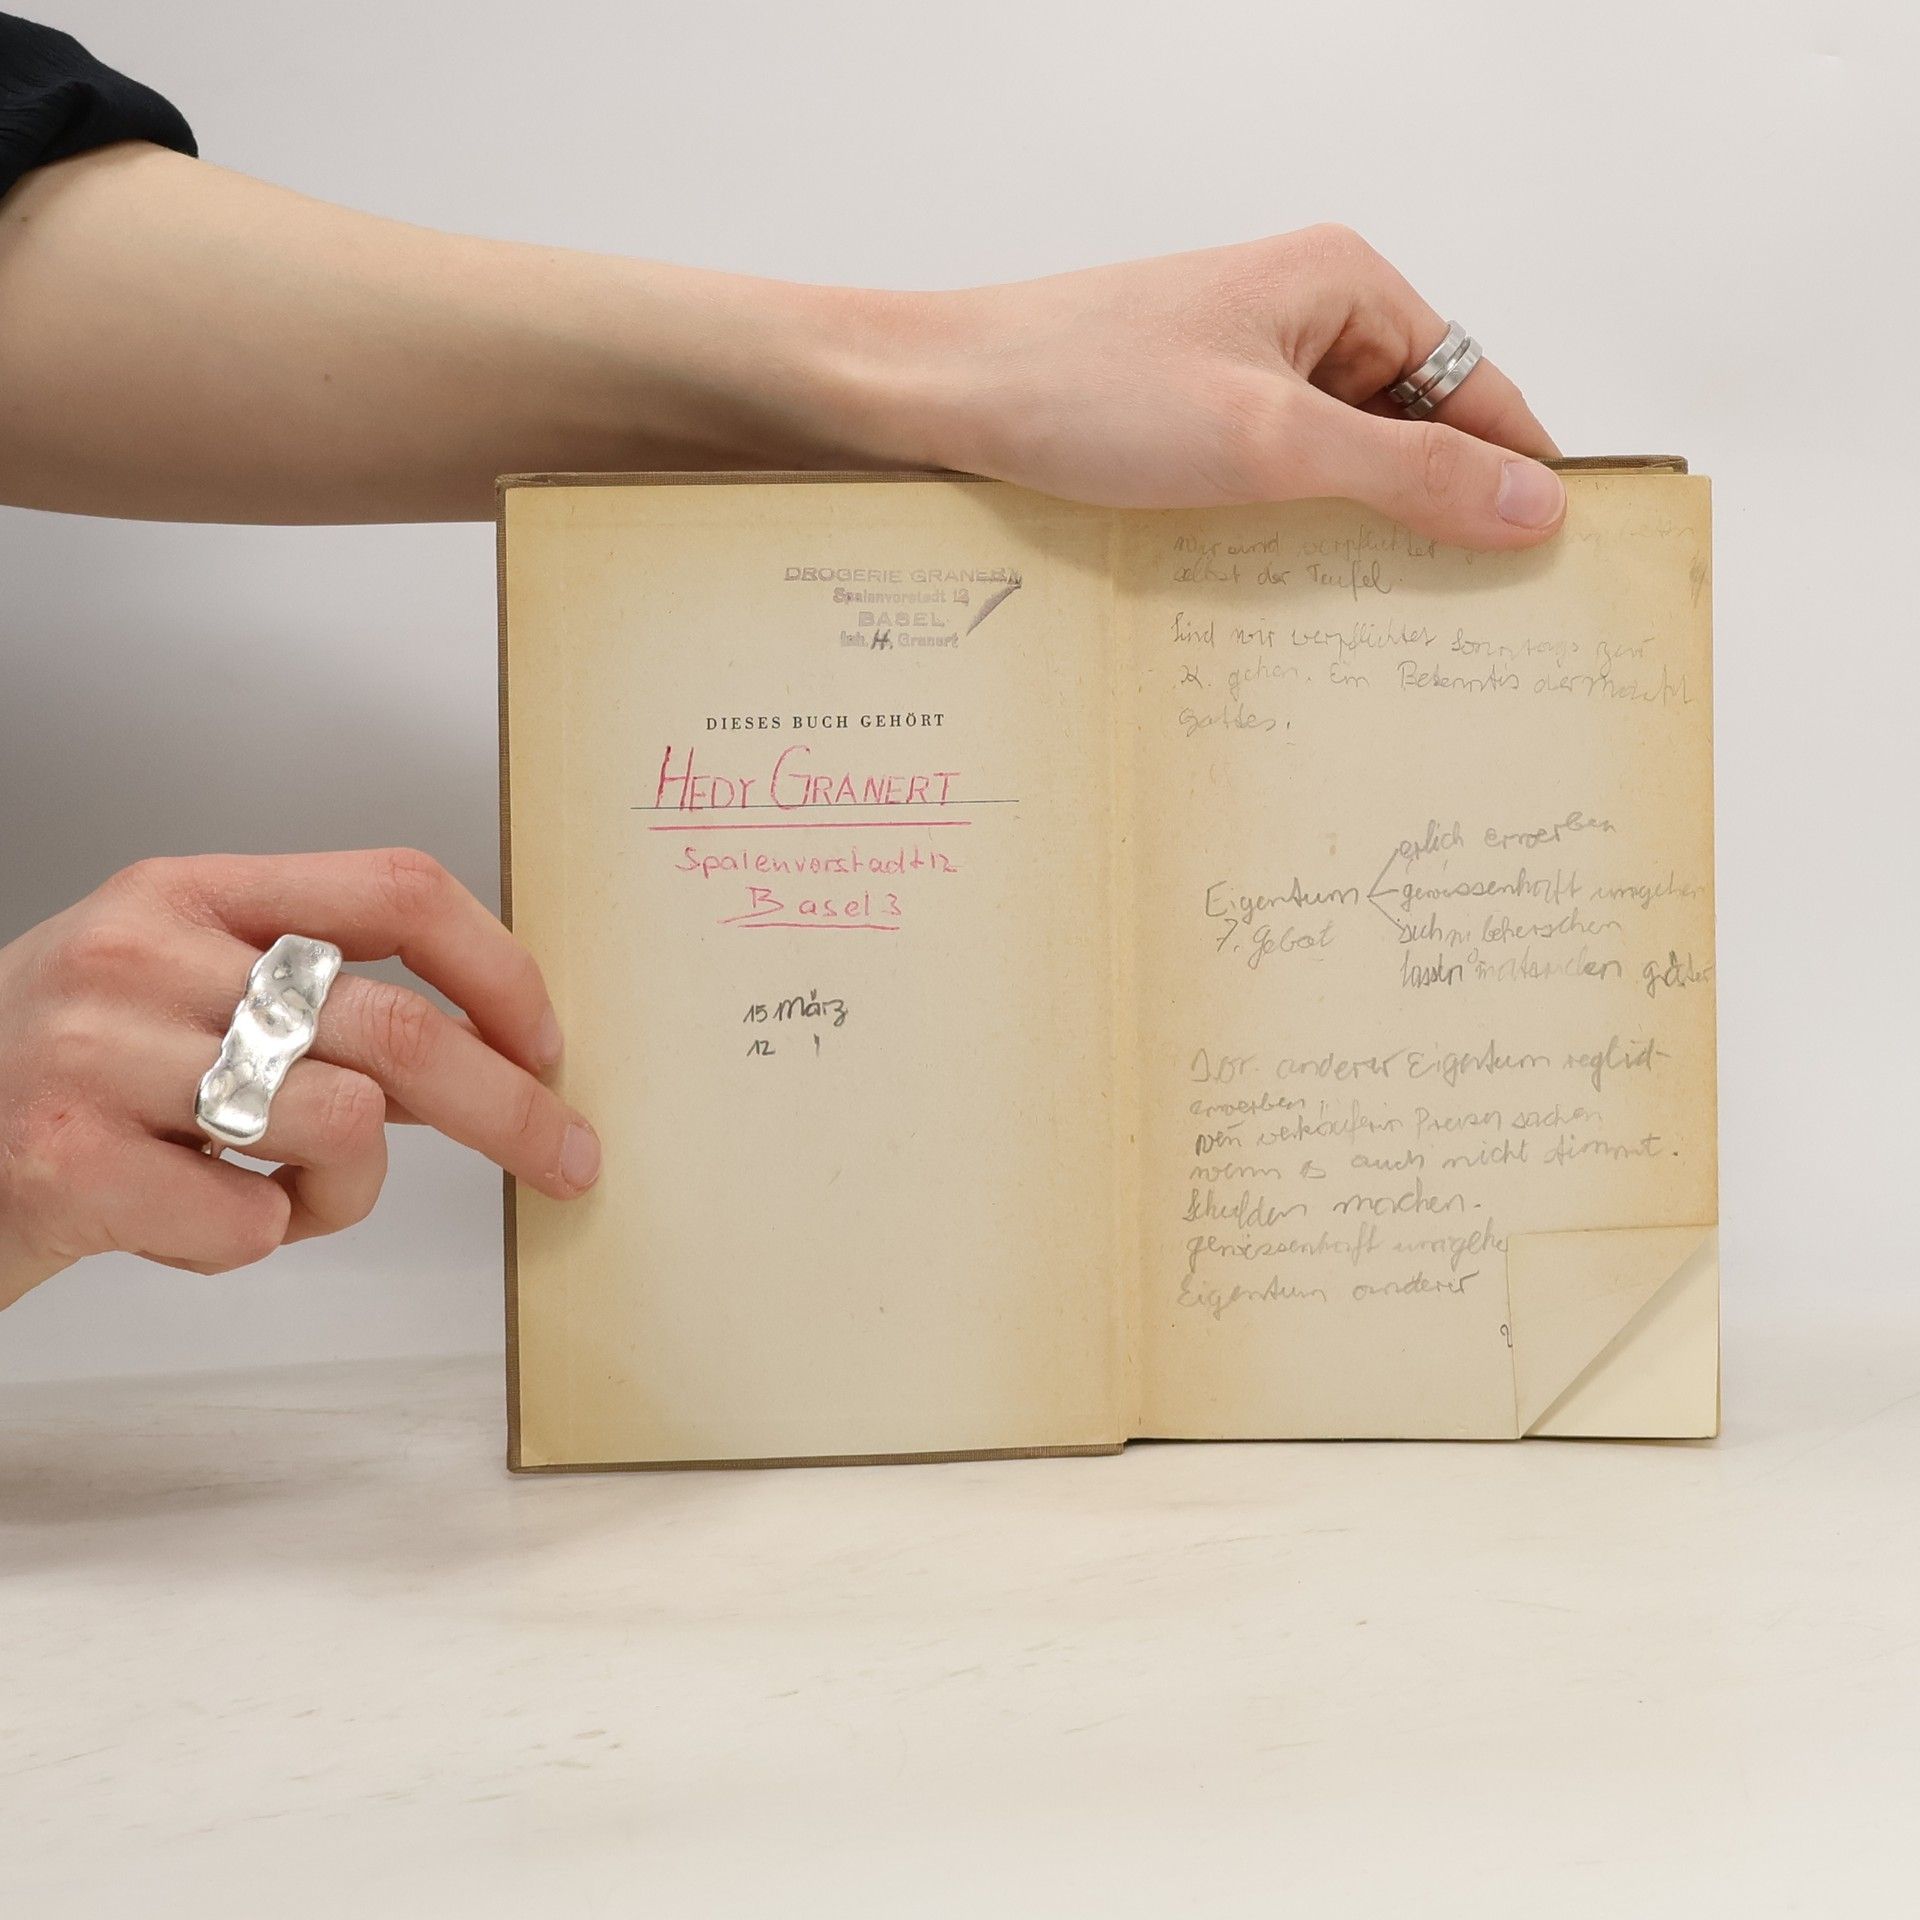 DROGERIE GRANERT
Spalenvorstadt 12
BASEL
Inh. H. Granert
DIESES BUCH GEHÖRT
HEDY GRANERT
Spalenvorstadt 12
Basel 3
15 März
12 "
wir sind verpflichtet
selbst der Teufel.
Sind wir verpflichtet Sonntags zur
K. gehen. Ein Bekenntis der
Gottes.
erlich erwerben
Eigentum gewissenhaft umgehen
7. Gebot
sich beherschen
lassen materielen
anderer Eigentum
erwerben
verkäuferin Preisen sachen
wenn es auch nicht stimmt.
Schulden machen.
gewissenhaft umgehe
Eigentum anderer